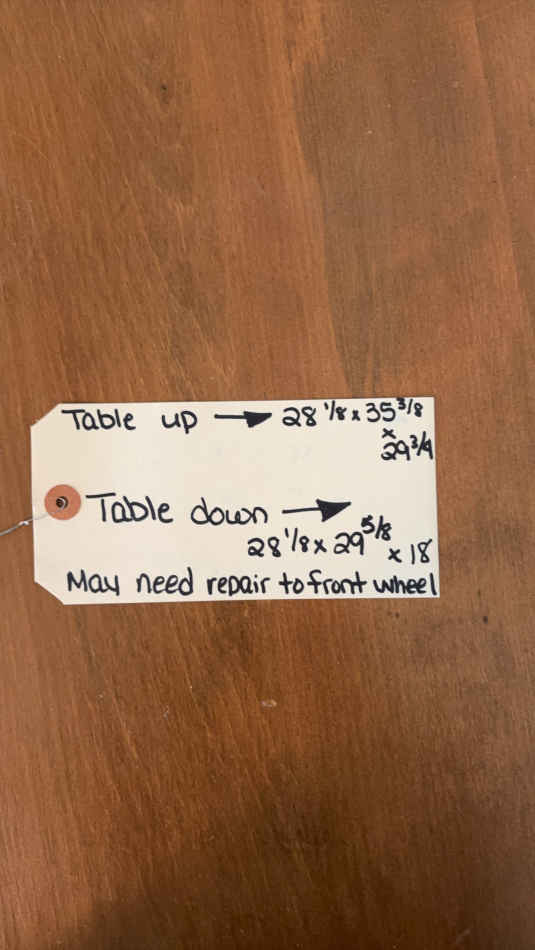 Table up → 28 1/8 x 35 3/8
x
29 3/4
Table down →
28 1/8 x 29 5/8 x 18
May need repair to front wheel